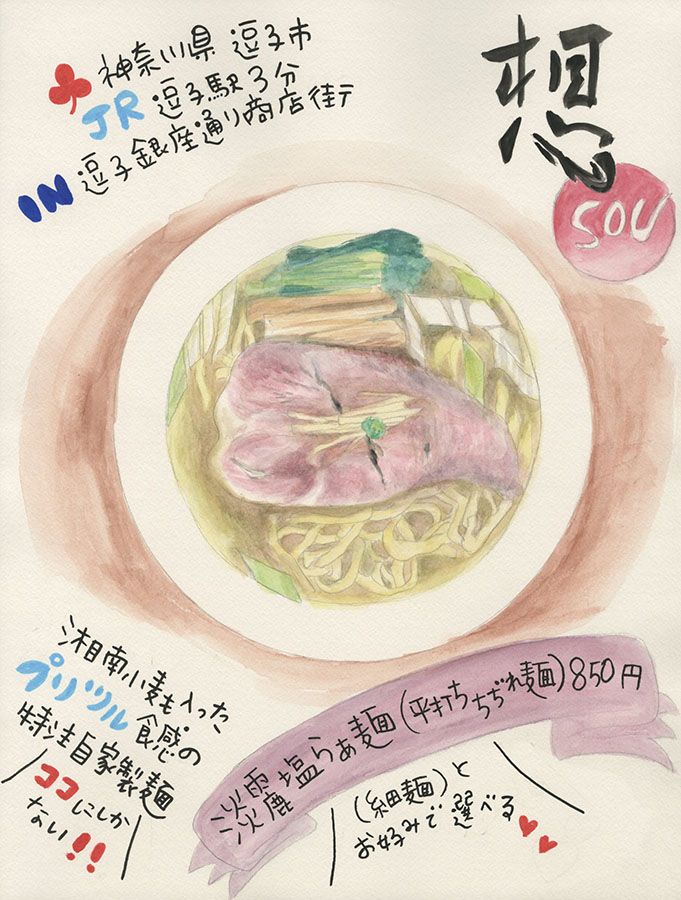 ♣神奈川県 逗子市
JR 逗子駅3分
IN 逗子銀座通り商店街
想
SOU
湘南小麦も入った
プリツル食感の
特注自家製麺
ココにしか
ない!!
淡麗塩らぁ麺(平打ちちぢれ麺)850円
(細麺)と
お好みで選べる♥♥